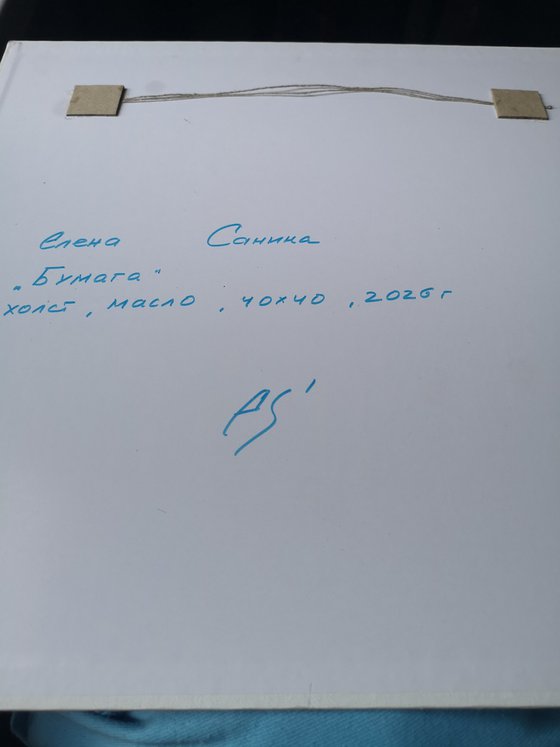 Елена Санина
„Бумага"
холст, масло, 40х40, 2026г